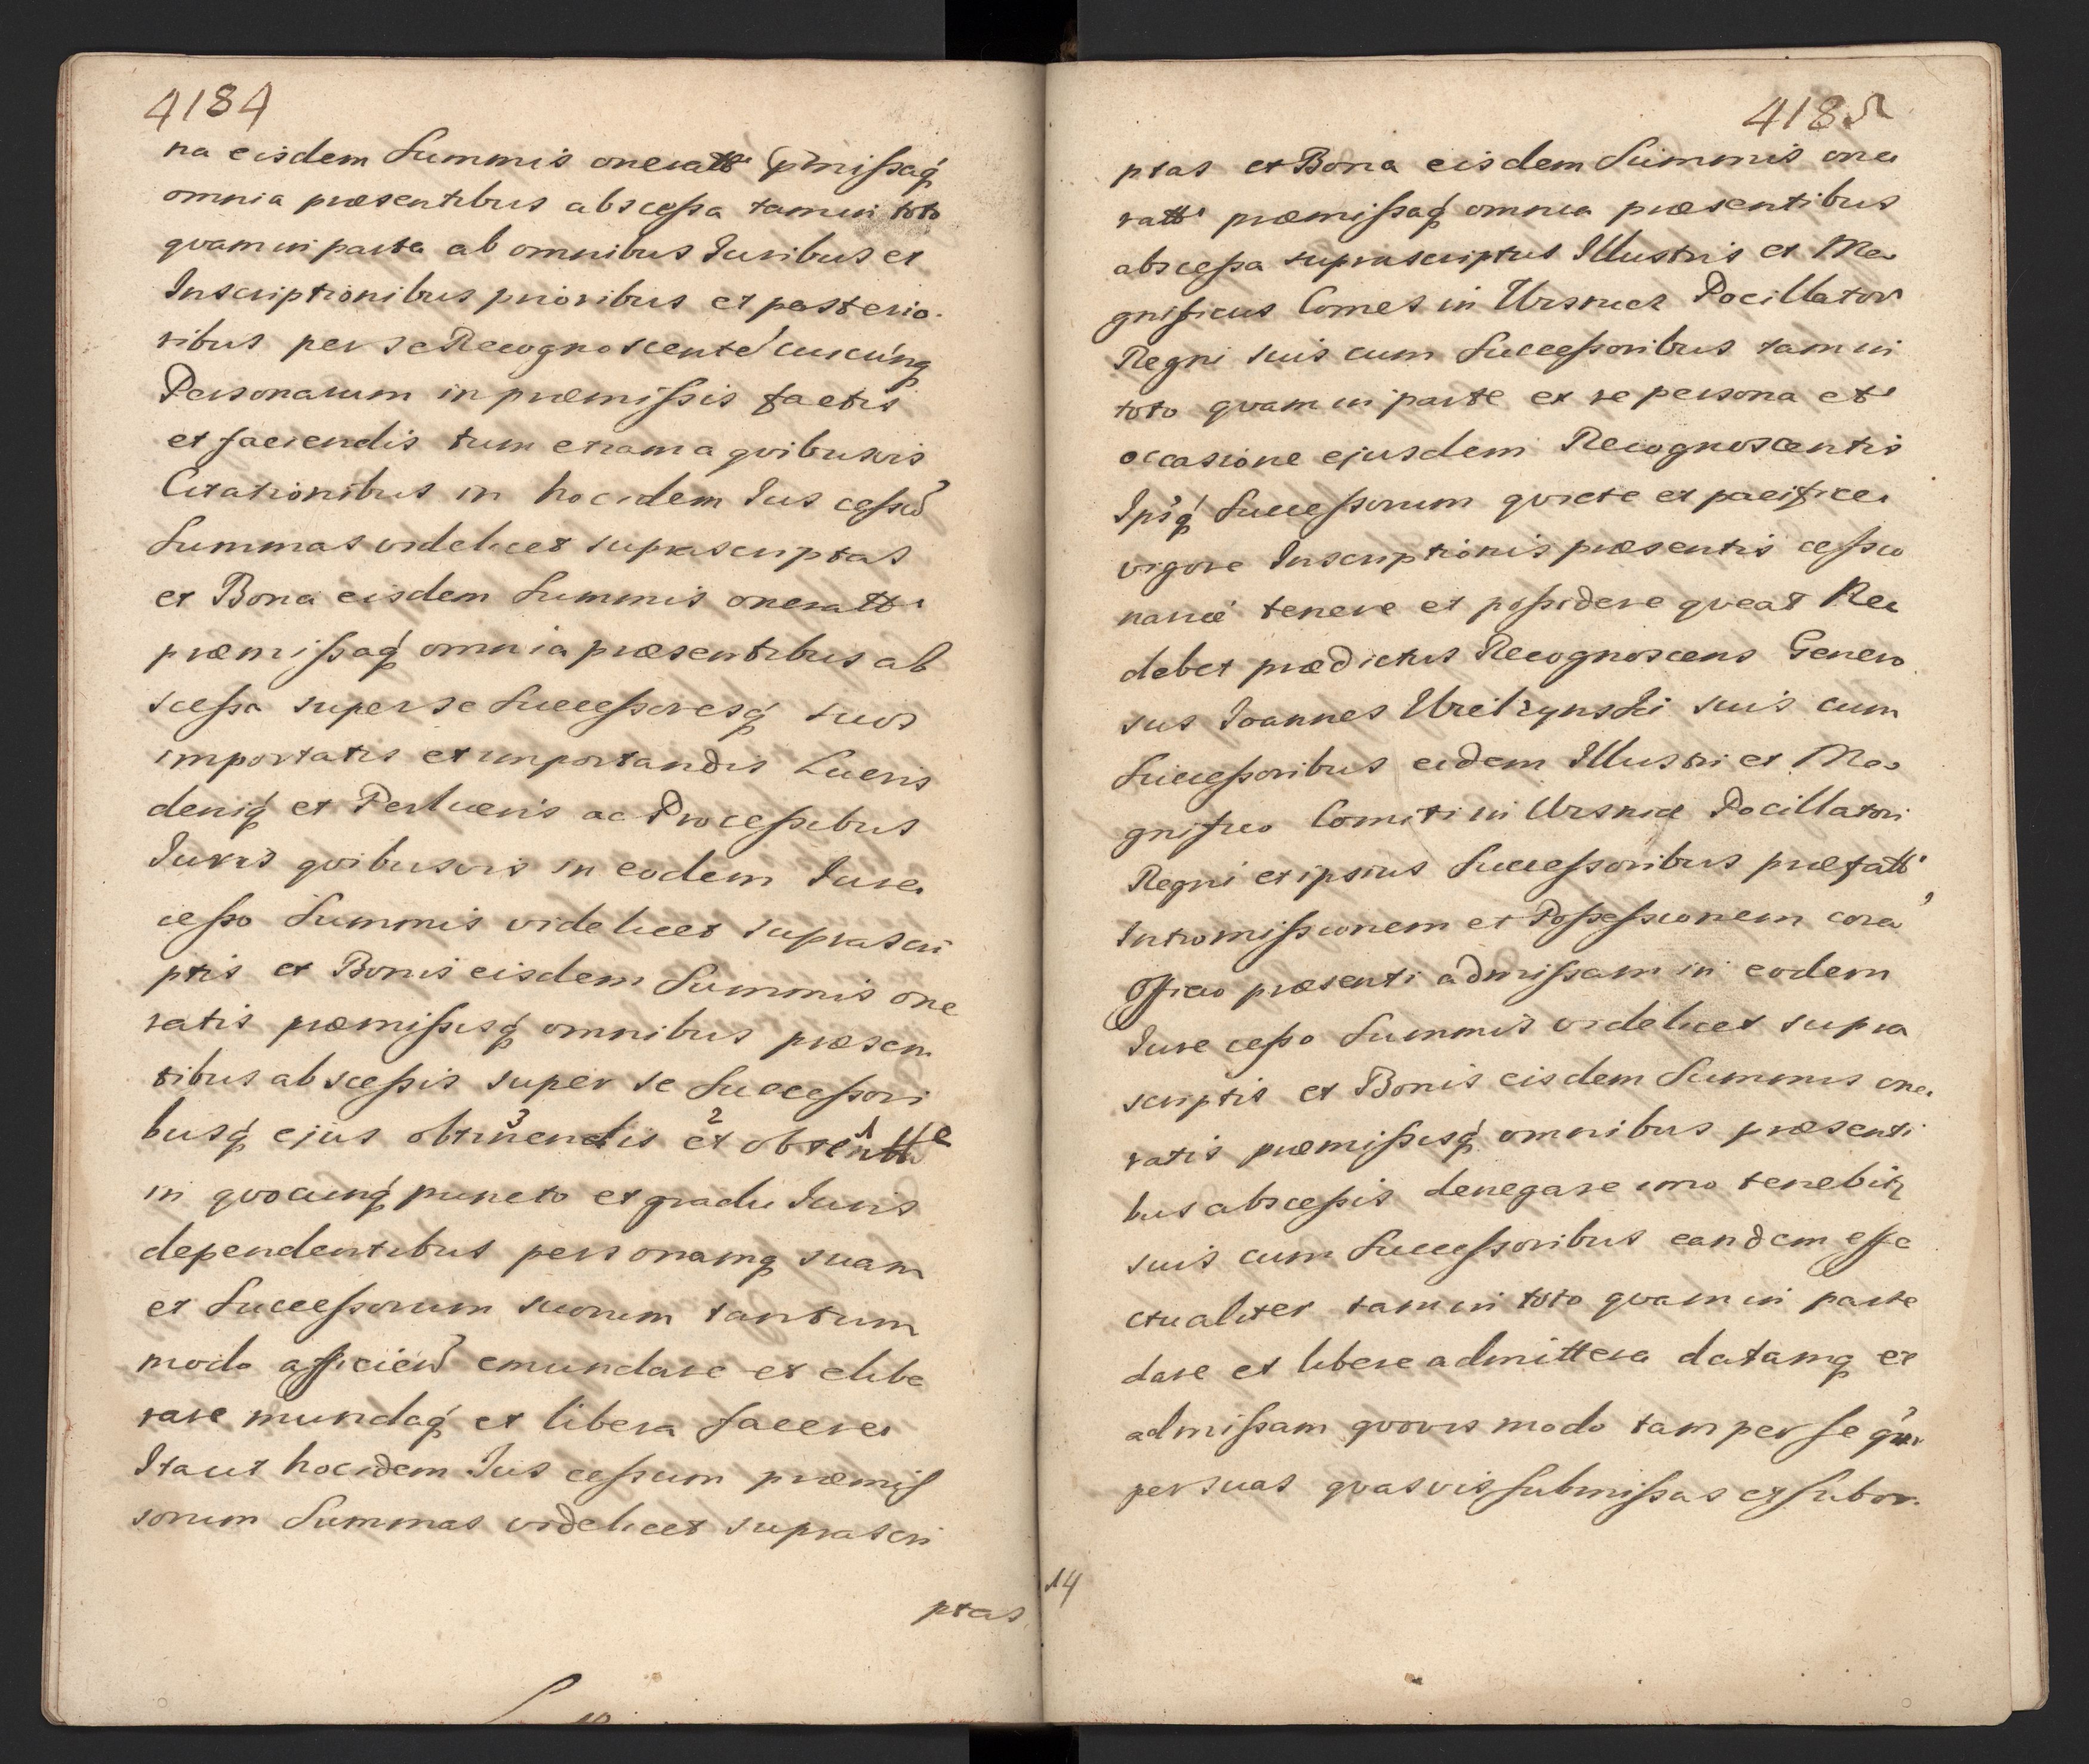 4184
na eisdem Summis oneratt pmissaq
omnia præsentibus abscessa tam in toto
qvam in parte ab omnibus Juribus et
Inscriptionibus prioribus et posterio-
ribus per se Recognoscente cuicunq
Personarum in præmissis factis
et faciendis tum etiam a qvibusvis
Citationibus in hoc idem Jus cessu
Summas videlicet suprascriptas
et Bona eisdem Summis oneratt
præmissaq omnia præsentibus ab
scessa super se Successoresq suos
importatis et importandis Lucris
deniq et Perlucris ac Processibus
Juris qvibusvis in eodem Jure
cesso Summis videlicet suprascri
ptis et Bonis eisdem Summis one
ratis præmissisq omnibus præsen
tibus abscessis super se Successori
busq ejus obtinendis et obtentte
in qvocunq puncto et gradu Juris
dependentibus personamq suam
et Successorum suorum tantum
modo afficien emundare et elibe
rare mundaq et libera facere
Ita ut hoc idem Jus cessum præmis
sorum Summas videlicet suprascri
ptas
4185
ptas et Bona eisdem Summis one
ratt præmissaq omnia præsentibus
abscessa suprascriptus Illustris et Ma
gnificus Comes in Ursnicz Pocillator
Regni suis cum Successoribus tam in
toto qvam in parte ex re persona et
occasione ejusdem Recognoscentis
Ipsq Successorum qviete et pacifice
vigore Inscriptionis præsentis cessio
nariæ tenere et possidere qveat Nec
debet prædictus Recognoscens Genero
sus Joannes Ureitzynski suis cum
Successoribus eidem Illustri et Ma
gnifico Comiti in Ursnicz Pocillatori
Regni et ipsius Successoribus præfatt
Intromissionem et Possessionem cora
Officio præsenti admissam in eodem
Jure cesso Summis videlicet supra
scriptis et Bonis eisdem Summis one
ratis præmissisq omnibus præsenti
bus abscessis denegare imo tenebit
suis cum Successoribus eandem effe
ctualiter tam in toto qvam in parte
dare et libere admittere datamq et
admissam qvovis modo tam per se qua
per suas qvasvis submissas et subor-
14